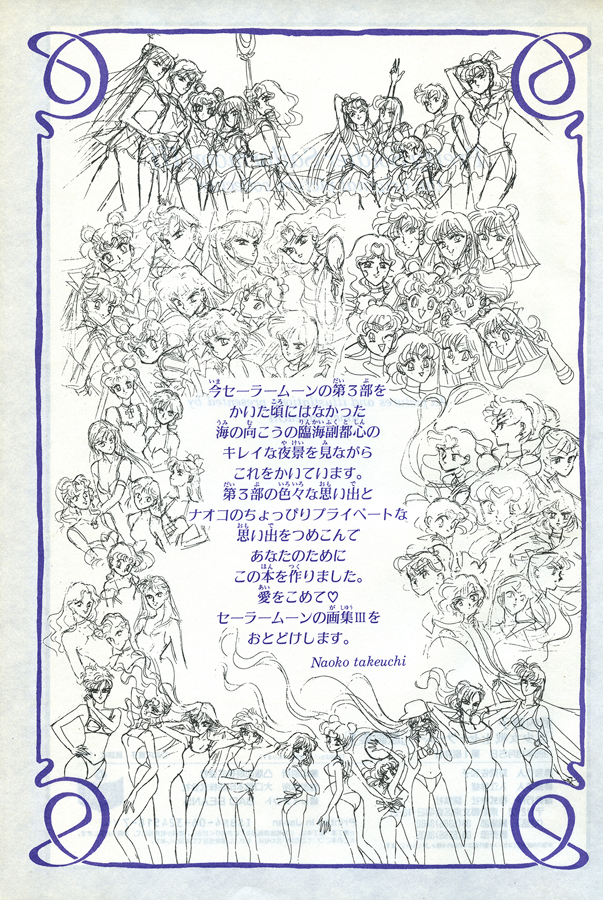 今セーラームーンの第3部を
かいた頃にはなかった
海の向こうの臨海副都心の
キレイな夜景を見ながら
これをかいています。
第3部の色々な思い出と
ナオコのちょっぴりプライベートな
思い出をつめこんで
あなたのために
この本を作りました。
愛をこめて♡
セーラームーンの画集Ⅲを
おとどけします。
Naoko takeuchi